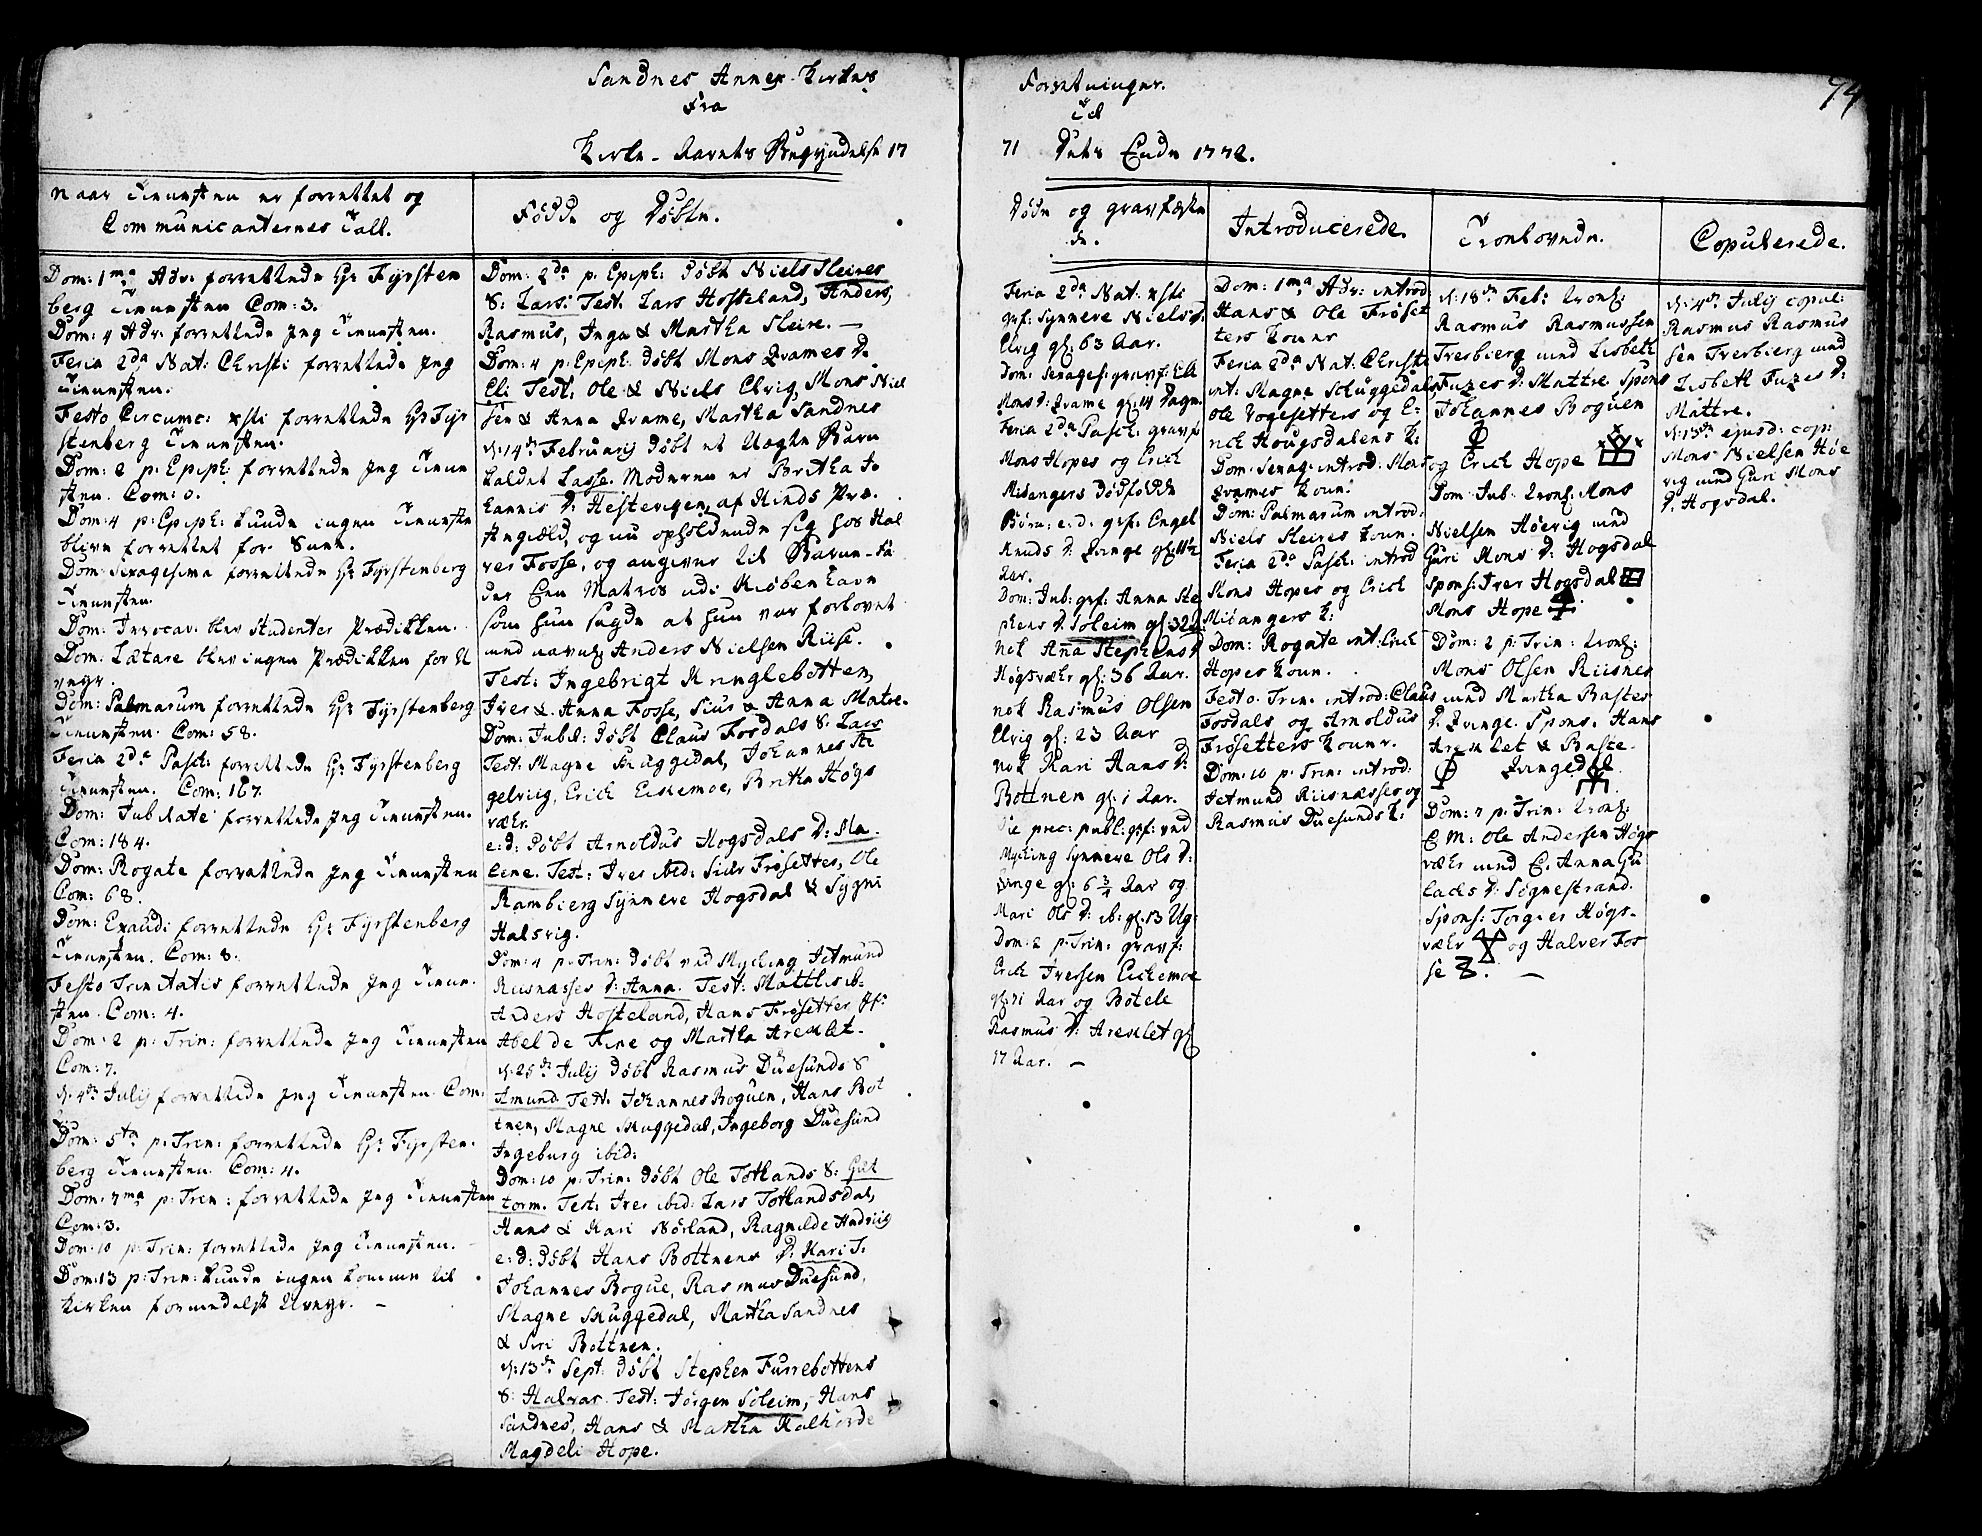 Sandnes Annex-Kirkes
Fra
Kirke-Aarets Begyndelse 17
Naar Tienesten er forrettet og
Communicanternes Tall.
Dom: 1ma Adv: forrettede Hr Fyrsten
berg Tienesten Com: 3.
Dom: 4 Adv: forrettede Jeg Tienesten.
Feria 2da Nat: Christi forrettede Jeg
Tienesten.
Festo Circumc: xsti forrettede Hr Fyr
stenberg Tienesten.
Dom: 2 p: Epiph: forrettede Jeg Tiene
sten. Com: 0.
Dom: 4 p: Epiph: kunde ingen Tieneste
blive forrettet for Snee.
Dom: Sexagesima forrettede Hr Fyrstenberg
Tienesten.
Dom: Invocav: blev Studenter Prædikken.
Dom: Lætare blev ingen Prædikken for U
veyr.
Dom: Palmarum forrettede Hr Fyrstenberg
Tienesten. Com: 58.
Feria 2da Pasch: forrettede Hr Fyrstenberg
Tienesten. Com: 167.
Dom: Jubilate forrettede Jeg Tienesten.
Com: 184.
Dom: Rogate forrettede Jeg Tienesten
Com: 68.
Dom: Exaudi forrettede Hr Fyrstenberg
Tienesten. Com: 8.
Festo Trinitatis forrettede Jeg Tiene-
sten. Com: 4.
Dom: 2 p: Trin: forrettede Jeg Tienesten
Com: 7.
d: 4de Julij forrettede Jeg Tienesten. Com:
Dom: 5ta p: Trin: forrettede Hr Fyrsten-
berg Tienesten. Com: 4.
Dom: 7ma p: Trin: forrettede Jeg Tienesten
Com: 3.
Dom: 10 p: Trin: forrettede Jeg Tienesten.
Dom: 13 p: Trin: kunde ingen komme til
Kirken formedelst Uveyr. –
Fødde og Døbte.
Dom: 2da p: Epiph: døbt Niels Sleires
S: Lars: Test: Lars Hosteland, Anders,
Rasmus, Inga & Martha Sleire. –
Dom: 4 p: Epiph: døbt Mons Qvames D:
Eli Test: Ole & Niels Elvig, Mons Niel
sen & Anna Qvame, Martha Sandnes
d: 14de Februarij døbt et Uægte Barn
kaldet Lasse. Moderen er Britha Jo
hannis D: Hestevigen, af Hinds Præ-
stegield, og nu opholdende sig hos Hal
ver Fosse, og angiver til Barne-Fa
der Een Matros udi Kiøbenhavn
som hun sagde at hun var forlovet
med navnl: Anders Nielsen Riise.
Test: Ingebrigt Kringlebotten,
Iver & Anna Fosse, Siur & Anna Matre.
Dom: Jubil: døbt Claus Fosdals S: Lars
Test: Magne Skuggedal, Johannes In
gelvig, Erich Eickemoe, Britha Høgs
vær.
e: d: døbt Arnoldus Hogsdals D: Ma-
lene. Test: Iver ibid: Siur Frøsettes, Ole
Rambierg Synneve Hogsdal & Sygni
Halsvig.
Dom: 4 p: Trin: døbt ved Mycking Jetmund
Riisnæsses D: Anna. Test: Matthis ib:
Anders Hosteland, Hans Frøsetter Jfr
Abel de Fine og Martha Areklet.
d: 25de Julij døbt Rasmus Duesunds S
Amund Test: Johannes Boguen, Hans Bot
tnen, Magne Skuggedal, Ingeborg Duesund
Ingeburg ibid:
Dom: 10 p: Trin: døbt Ole Totlands S: Gut
torm. Test: Iver ibid: Lars Totlandsdal,
Hans & Kari Nørland, Ragnilde Hadviig
e: d: døbt Hans Bottnens D: Kari T:
Johannes Bogue, Rasmus Duesund,
Magne Skuggedal, Martha Sandnes
& Siri Bottnen.
d: 13de Sept: døbt Stephen Furrebottens
S: Halvar Test: Jørgen Soleim, Hans
Sandnes, Hans & Martha Kalhorde
Magdeli Hope.
Forretninger.
Til
71 Dets Ende 1772.
74
Døde og gravfæste
de.
Feria 2da Nat: xsti
grf: Synneve Niels D:
Elvig gl: 63 Aar.
Dom: Sexages: gravf: Elli
Mons D: Qvame gl: 14 Dage.
Feria 2da Pasch: gravf:
Mons Hopes og Erich
Midangers dødfødde
Børn: e: d: grf: Engel
Knuds D: Qvinge gl: 11½
Aar.
Dom: Jub: grf: Anna Ste
phens D: Soleim gl: 32 A:
nok Anna Stephens D
Høgsvær gl: 36 Aar.
nok Rasmus Olsen
Elvig gl: 23 Aar
nok Kari Hans D:
Bottnen gl: 1 Aar.
Die prec: publ: grf: ved
Mycking Synneve Ols D:
Qvinge gl: 6 3/4 Aar og
Mari Ols D: ib: gl: 13 Ug:
Dom: 2 p: Trin: gravf:
Erich Iversen Eickemoe
gl: 71 Aar og Botele
Rasmus D: Areklet gl
17 Aar. –
Introducerede.
Dom: 1ma Adv: introd
Hans & Ole Frøset
ters Koner
Feria 2da Nat: Christi
int: Magne Skuggedals,
Ole Vogesetters og E-
rick Hougsdalens K:
Dom: Sexag: introd: Mons
Qvames Kone.
Dom: Palmarum introd:
Niels Sleires Kone.
Feria 2da Pasch: introd
Mons Hopes og Erich
Midangers K:
Dom: Rogate int: Erich
Hopes Kone.
Festo Trin: introd: Claus
Fosdals og Arnoldus
Frøsetters Koner.
Dom: 10 p: Trin: introd:
Jetmund Riisnæsses og
Rasmus Duesunds K:
Trolovede.
d: 18de Feb: trol:
Rasmus Rasmussen
Tverbierg med Lisbeth
Fuzes D: Mattre Spons
Johannes Boguen
og Erich Hope
Dom: Jub: trol: Mons
Nielsen Høevig med
Guri Mons D: Hogsdal
Spons: Iver Hogsdal
Mons Hope
Dom: 2 p: Trin: trol:
Mons Olsen Riisnes
med Martha Bastes
D: Qvinge. Spons: Hans
Areklet & Baste
Qvingedal
Dom: 7 p: Trin: trol:
E M: Ole Andersen Høgs
vær med E. Anna Gu
lacks D: Sognestrand.
Spons: Torgier Høgs-
vær og Halver Fos
se. –
Copulerede.
d: 4de Julij copul:
Rasmus Rasmus
sen Tverbierg med
Lisbeth Fuzes D:
Mattre.
d: 13de ejusd: cop:
Mons Nielsen Høe
vig med Guri Mons
D: Hogsdal.